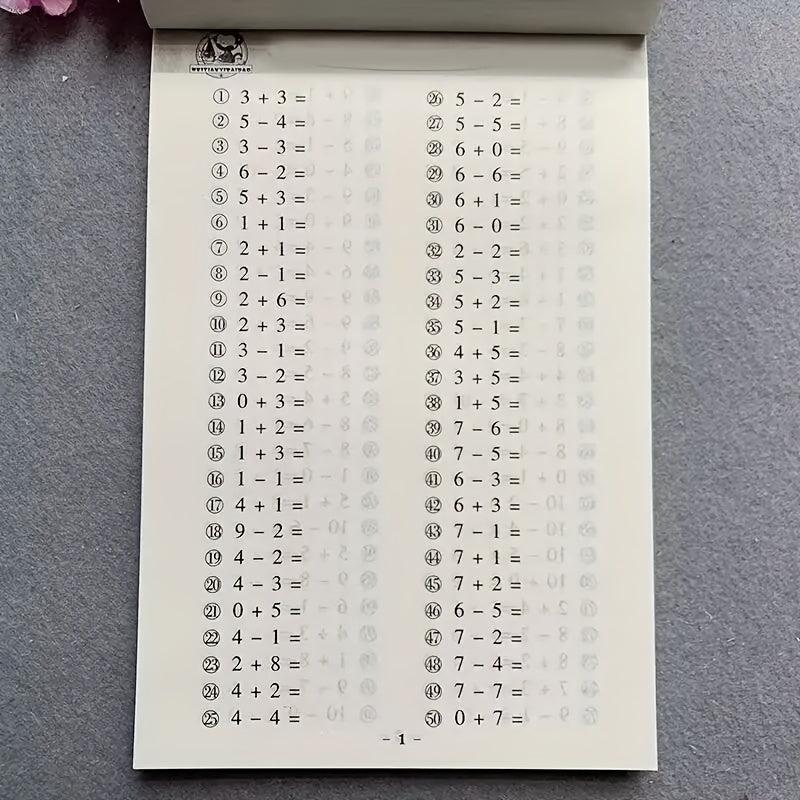 ① 3 + 3 =
② 5 − 4 =
③ 3 − 3 =
④ 6 − 2 =
⑤ 5 + 3 =
⑥ 1 + 1 =
⑦ 2 + 1 =
⑧ 2 − 1 =
⑨ 2 + 6 =
⑩ 2 + 3 =
⑪ 3 − 1 =
⑫ 3 − 2 =
⑬ 0 + 3 =
⑭ 1 + 2 =
⑮ 1 + 3 =
⑯ 1 − 1 =
⑰ 4 + 1 =
⑱ 9 − 2 =
⑲ 4 − 2 =
⑳ 4 − 3 =
㉑ 0 + 5 =
㉒ 4 − 1 =
㉓ 2 + 8 =
㉔ 4 + 2 =
㉕ 4 − 4 =
㉖ 5 − 2 =
㉗ 5 − 5 =
㉘ 6 + 0 =
㉙ 6 − 6 =
㉚ 6 + 1 =
㉛ 6 − 0 =
㉜ 2 − 2 =
㉝ 5 − 3 =
㉞ 5 + 2 =
㉟ 5 − 1 =
㊱ 4 + 5 =
㊲ 3 + 5 =
㊳ 1 + 5 =
㊴ 7 − 6 =
㊵ 7 − 5 =
㊶ 6 − 3 =
㊷ 6 + 3 =
㊸ 7 − 1 =
㊹ 7 + 1 =
㊺ 7 + 2 =
㊻ 6 − 5 =
㊼ 7 − 2 =
㊽ 7 − 4 =
㊾ 7 − 7 =
㊿ 0 + 7 =
- 1 -